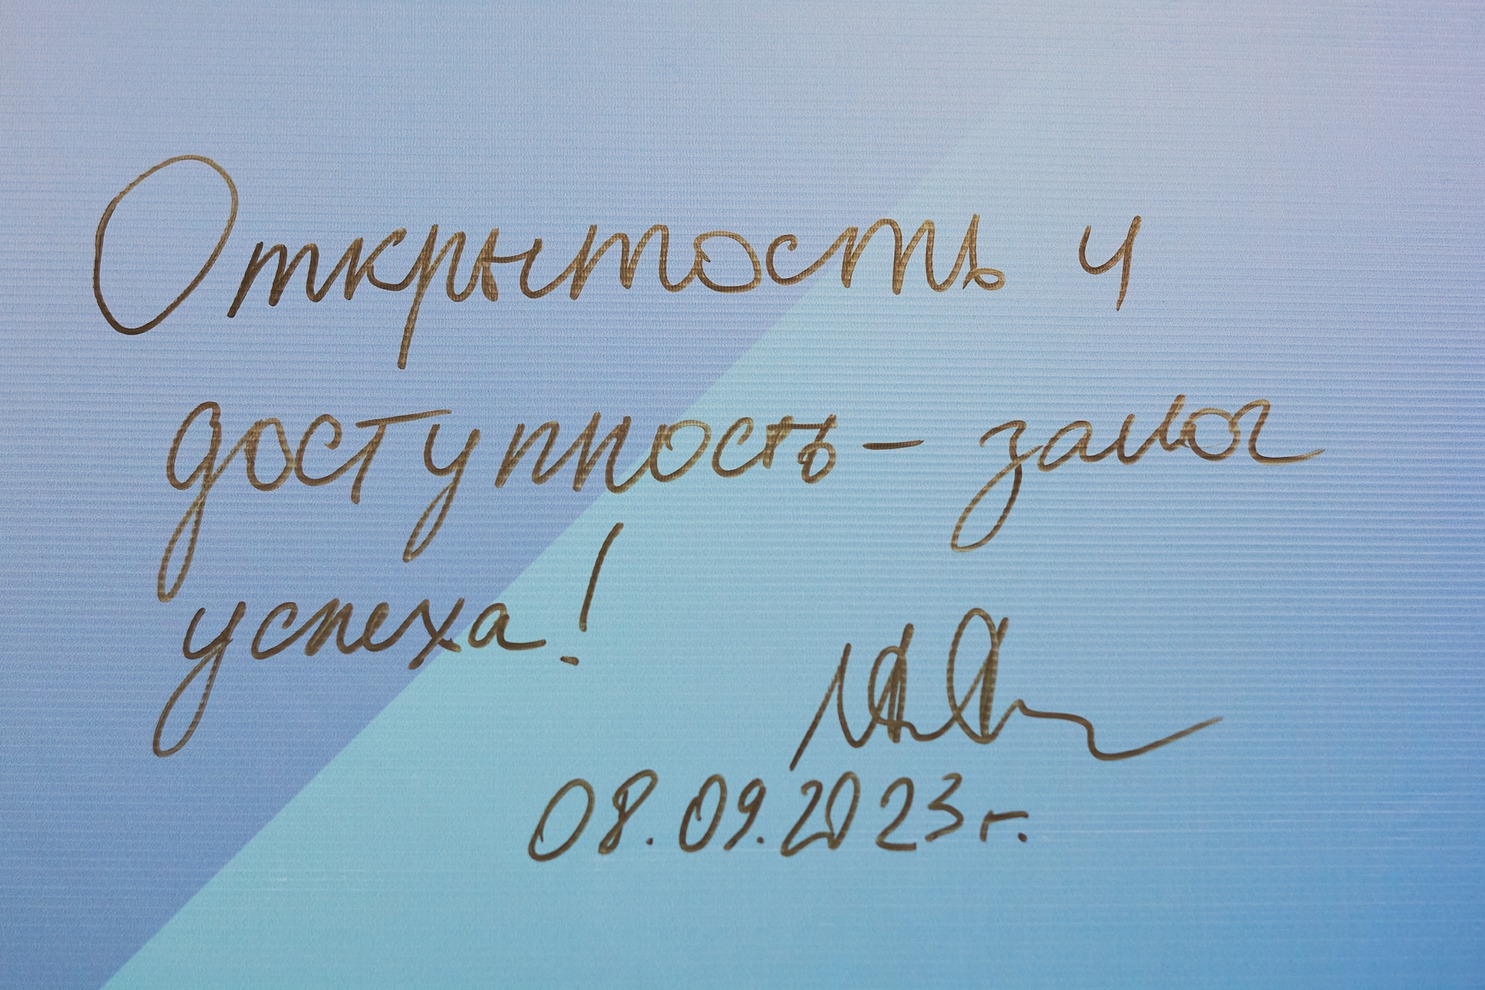 Открытость и
доступность – залог
успеха!
08.09.2023 г.